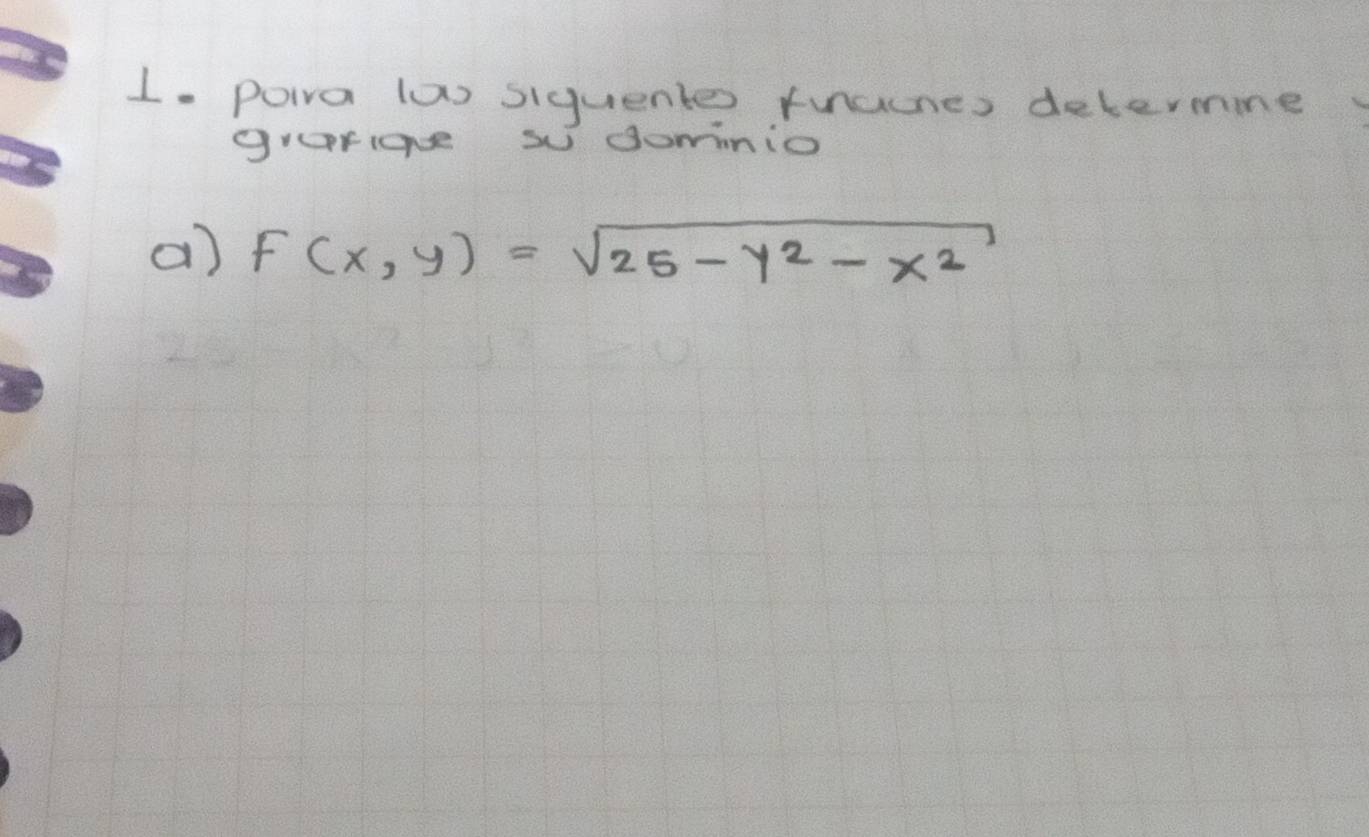 1. para las siguientes funciones determine y
grafique su dominio
a) F(x,y) = √25-y²-x²